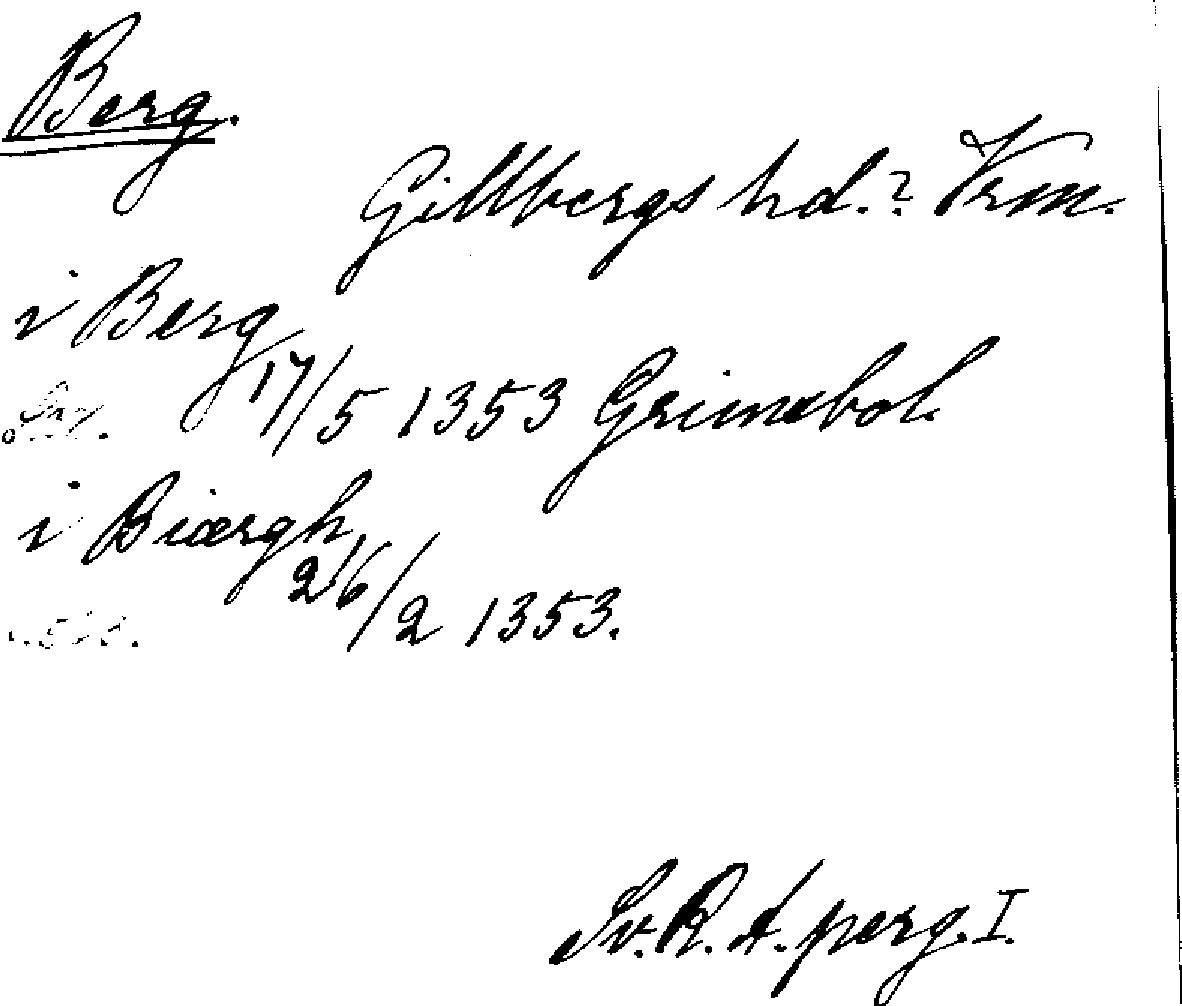 Berg.
Gillbergs hd.? Vrm.
i Berg
17/5 1353 Grimsbol.
i Biærgh
26/2 1353.
Sv. R. A. perg. I.